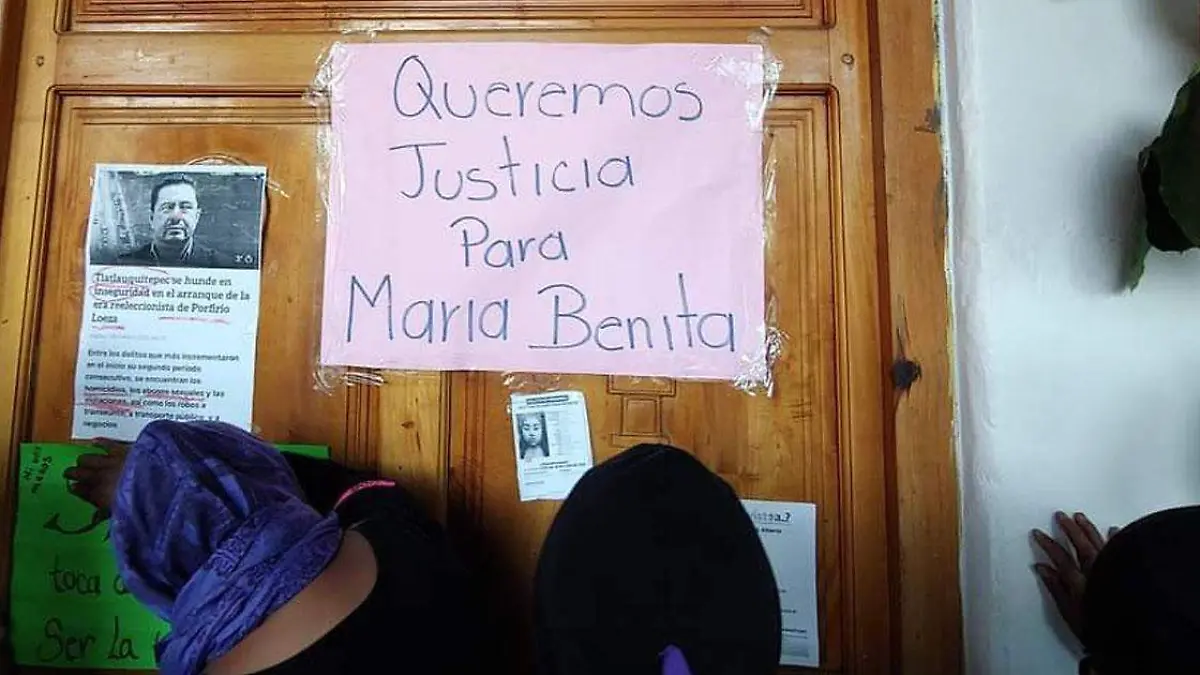 Queremos
Justicia
Para
María Benita
Tlatlauquitepec se hunde en
inseguridad en el arranque de la
era reeleccionista de Porfirio
Loeza
Entre los delitos que más incrementaron
en el inicio su segundo periodo
consecutivo, se encuentran los
homicidios, los abusos sexuales y las
violaciones, así como los robos a
transeúnte, a transporte público, y a
negocios
toca
Ser La